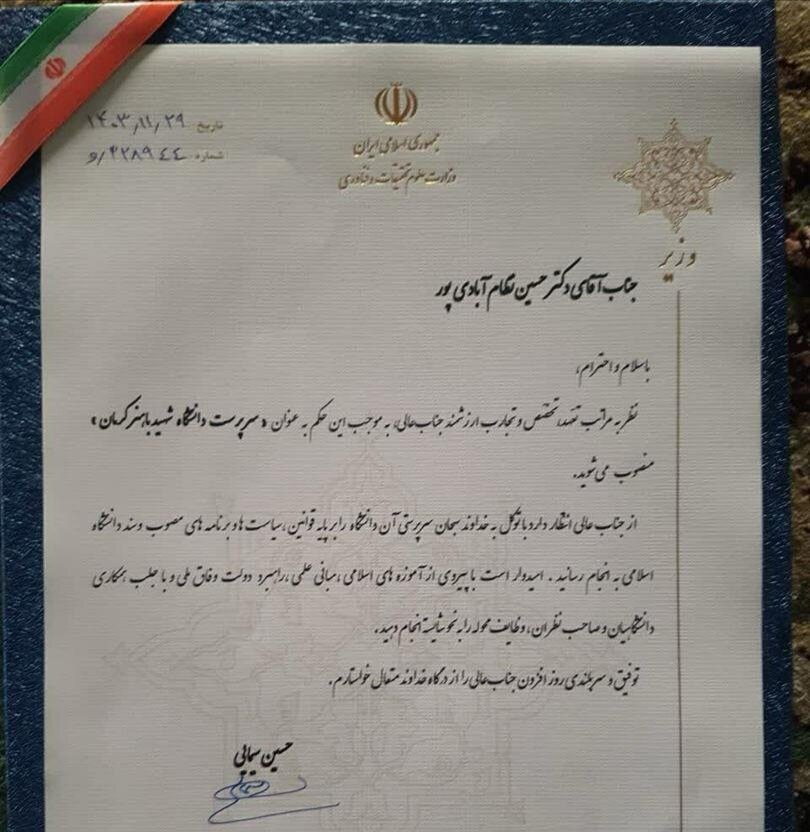 جمهوری اسلامی ایران
وزارت علوم تحقیقات و فناوری
تاریخ ۱۴۰۳/۱۱/۲۹
شماره و/۴۲۸۹۴۴
وزیر
جناب آقای دکتر حسین نظام آبادی پور
باسلام و احترام،
نظر به مراتب تعهد، تخصص و تجارب ارزشمند جناب‌عالی، به موجب این حکم به عنوان « سرپرست دانشگاه شهید باهنر کرمان »
منصوب می‌شوید.
از جناب عالی انتظار دارد با توکل به خداوند سبحان سرپرستی آن دانشگاه را بر پایه قوانین ، سیاست ها و برنامه های مصوب و سند دانشگاه
اسلامی به انجام رسانید . امیدوار است با پیروی از آموزه های اسلامی ، مبانی علمی ، راهبرد دولت وفاق ملی و با جلب همکاری
دانشگاهیان و صاحب نظران، وظایف محوله را به نحو شایسته انجام دهید.
توفیق و سربلندی روز افزون جناب‌عالی را از درگاه خداوند متعال خواستارم.
حسین سیمایی